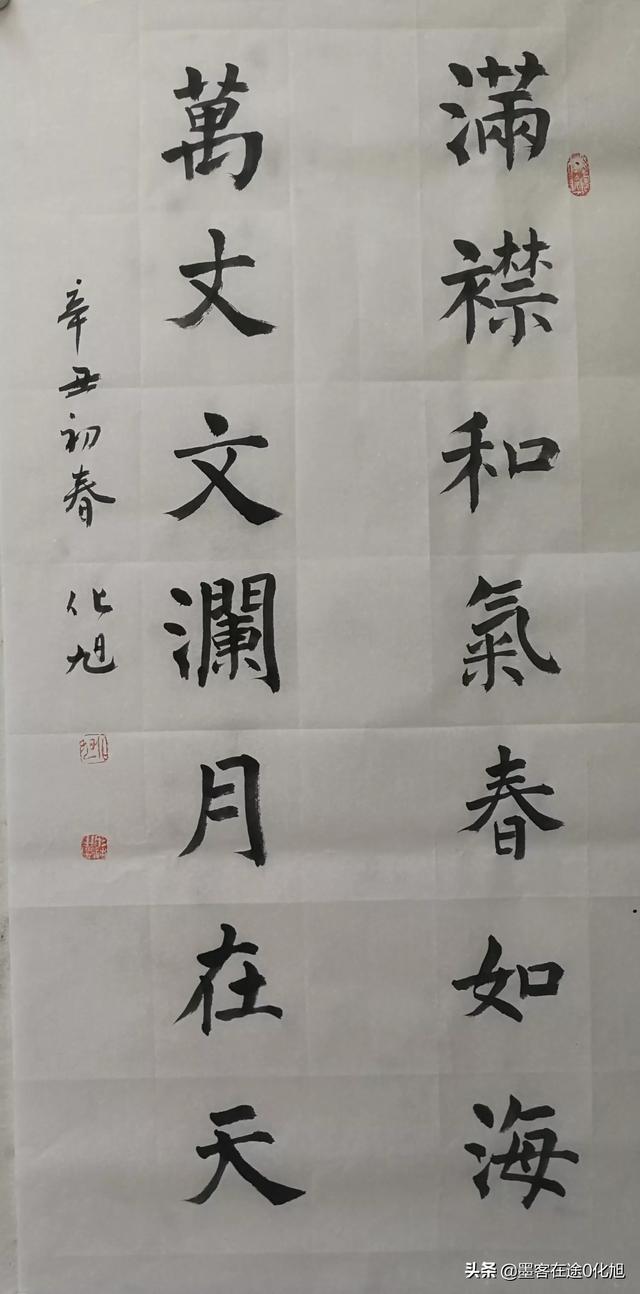 滿襟和氣春如海
萬丈文瀾月在天
辛丑初春 化旭
头条 @墨客在途0化旭